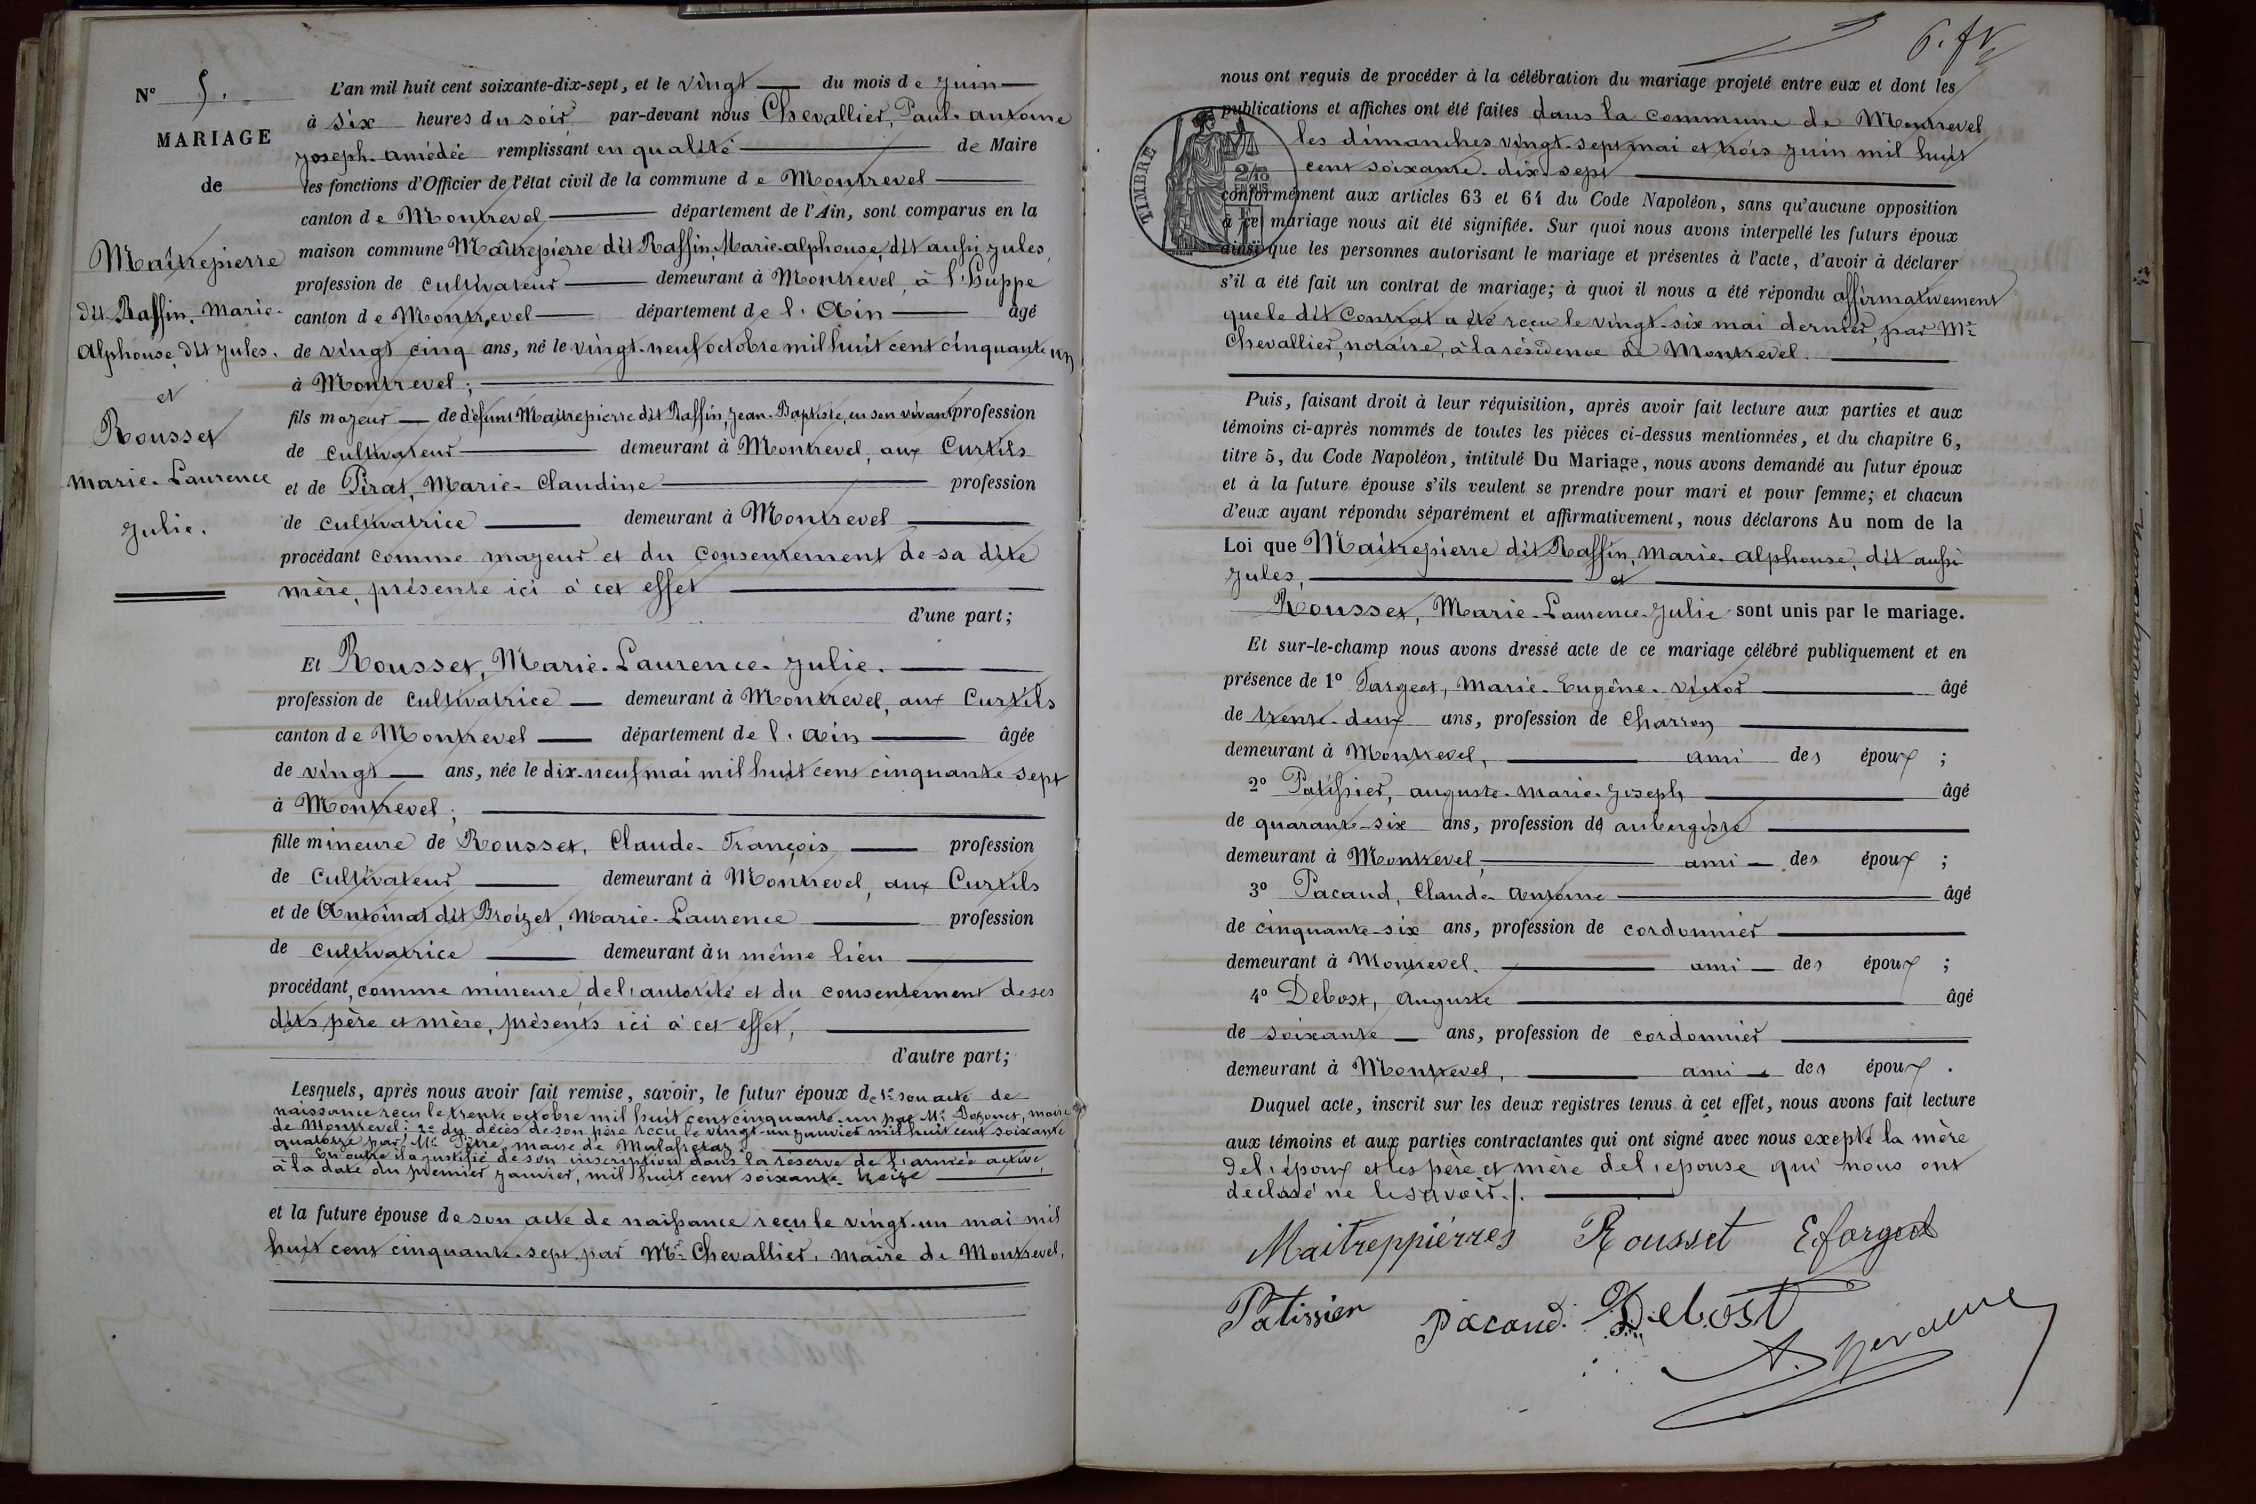 N° 5.
MARIAGE
de
Maitrepierre
dit Raffin, Marie-
Alphonse, dit Jules.
et
Rousset
Marie-Laurence
Julie.
L'an mil huit cent soixante-dix-sept, et le vingt du mois de Juin
à six heures du soir par-devant nous Chevallier, Paul-Antoine
Joseph-Amédée remplissant en qualité de Maire
les fonctions d'Officier de l'état civil de la commune de Montrevel
canton de Montrevel département de l'Ain, sont comparus en la
maison commune Maîtrepierre dit Raffin, Marie-Alphonse, dit aussi Jules,
profession de cultivateur demeurant à Montrevel, à l'Huppe
canton de Montrevel département de l'Ain âgé
de vingt cinq ans, né le vingt-neuf octobre mil huit cent cinquante un
à Montrevel;
fils majeur de défunt Maitrepierre dit Raffin, Jean-Baptiste, en son vivant profession
de cultivateur demeurant à Montrevel, aux Curtils
et de Pirat, Marie-Claudine profession
de cultivatrice demeurant à Montrevel
procédant comme majeur et du consentement de sa dite
mère, présente ici à cet effet
d'une part;
Et Rousset, Marie-Laurence-Julie.
profession de cultivatrice demeurant à Montrevel, aux Curtils
canton de Montrevel département de l'Ain âgée
de vingt ans, née le dix-neuf mai mil huit cent cinquante sept
à Montrevel;
fille mineure de Rousset, Claude-François profession
de cultivateur demeurant à Montrevel, aux Curtils
et de Antoinat dit Broizet, Marie-Laurence profession
de cultivatrice demeurant au même lieu
procédant, comme mineure, de l'autorité et du consentement de ses
dits père et mère, présents ici à cet effet,
d'autre part;
Lesquels, après nous avoir fait remise, savoir, le futur époux de 1° son acte de
naissance reçu le trente octobre mil huit cent cinquante-un par Mr maire
de Montrevel; 2° du décès de son père reçu le vingt-un janvier mil huit cent soixante
quatorze par Mr Pitre, maire de Malafretaz.
En outre il a justifié de son inscription dans la réserve de l'armée active,
à la date du premier janvier, mil huit cent soixante-treize
et la future épouse de son acte de naissance reçu le vingt-un mai mil
huit cent cinquante-sept par Mr Chevallier, maire de Montrevel.
6.
TIMBRE
2/10
EN SUS
nous ont requis de procéder à la célébration du mariage projeté entre eux et dont les
publications et affiches ont été faites dans la commune de Montrevel
les dimanches vingt-sept mai et trois juin mil huit
cent soixante-dix-sept
conformément aux articles 63 et 64 du Code Napoléon, sans qu'aucune opposition
à ce mariage nous ait été signifiée. Sur quoi nous avons interpellé les futurs époux
ainsi que les personnes autorisant le mariage et présentes à l'acte, d'avoir à déclarer
s'il a été fait un contrat de mariage; à quoi il nous a été répondu affirmativement
que le dit contrat a été reçu le vingt-six mai dernier, par Mr
Chevallier, notaire, à la résidence de Montrevel.
Puis, faisant droit à leur réquisition, après avoir fait lecture aux parties et aux
témoins ci-après nommés de toutes les pièces ci-dessus mentionnées, et du chapitre 6,
titre 5, du Code Napoléon, intitulé Du Mariage, nous avons demandé au futur époux
et à la future épouse s'ils veulent se prendre pour mari et pour femme; et chacun
d'eux ayant répondu séparément et affirmativement, nous déclarons Au nom de la
Loi que Maîtrepierre dit Raffin, Marie-Alphonse, dit aussi
Jules, et
Rousset, Marie-Laurence-Julie sont unis par le mariage.
Et sur-le-champ nous avons dressé acte de ce mariage célébré publiquement et en
présence de 1° Fargeot, Marie-Eugène-Victor âgé
de trente-deux ans, profession de charron
demeurant à Montrevel, ami des époux;
2° Patissier, Auguste-Marie-Joseph âgé
de quarante-six ans, profession de aubergiste
demeurant à Montrevel, ami des époux;
3° Pacaud, Claude-Antoine âgé
de cinquante-six ans, profession de cordonnier
demeurant à Montrevel. ami des époux;
4° Debost, Auguste âgé
de soixante ans, profession de cordonnier
demeurant à Montrevel, ami des époux.
Duquel acte, inscrit sur les deux registres tenus à cet effet, nous avons fait lecture
aux témoins et aux parties contractantes qui ont signé avec nous excepté la mère
de l'époux et les père et mère de l'épouse qui nous ont
déclaré ne le savoir./.
Maitreppierres Rousset E fargeot
Patissier Pacaud. Debost